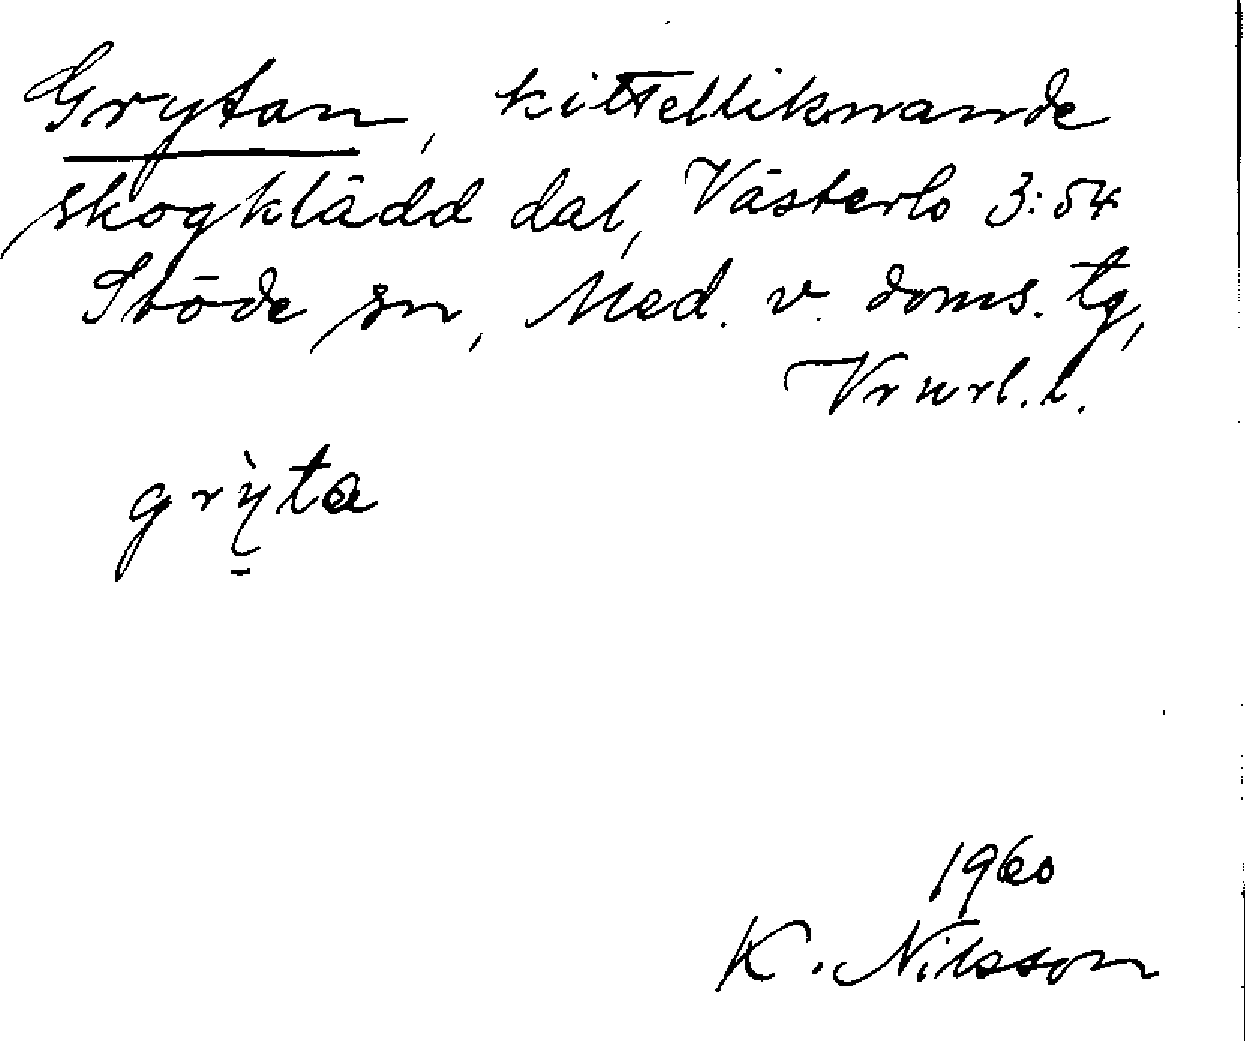 Grytan, kittelliknande
skogklädd dal, Västerlo 3:54
Stöde sn, Med. v. doms. tg,
Vrnrl. l.
grỳta
1960
K. Nilsson